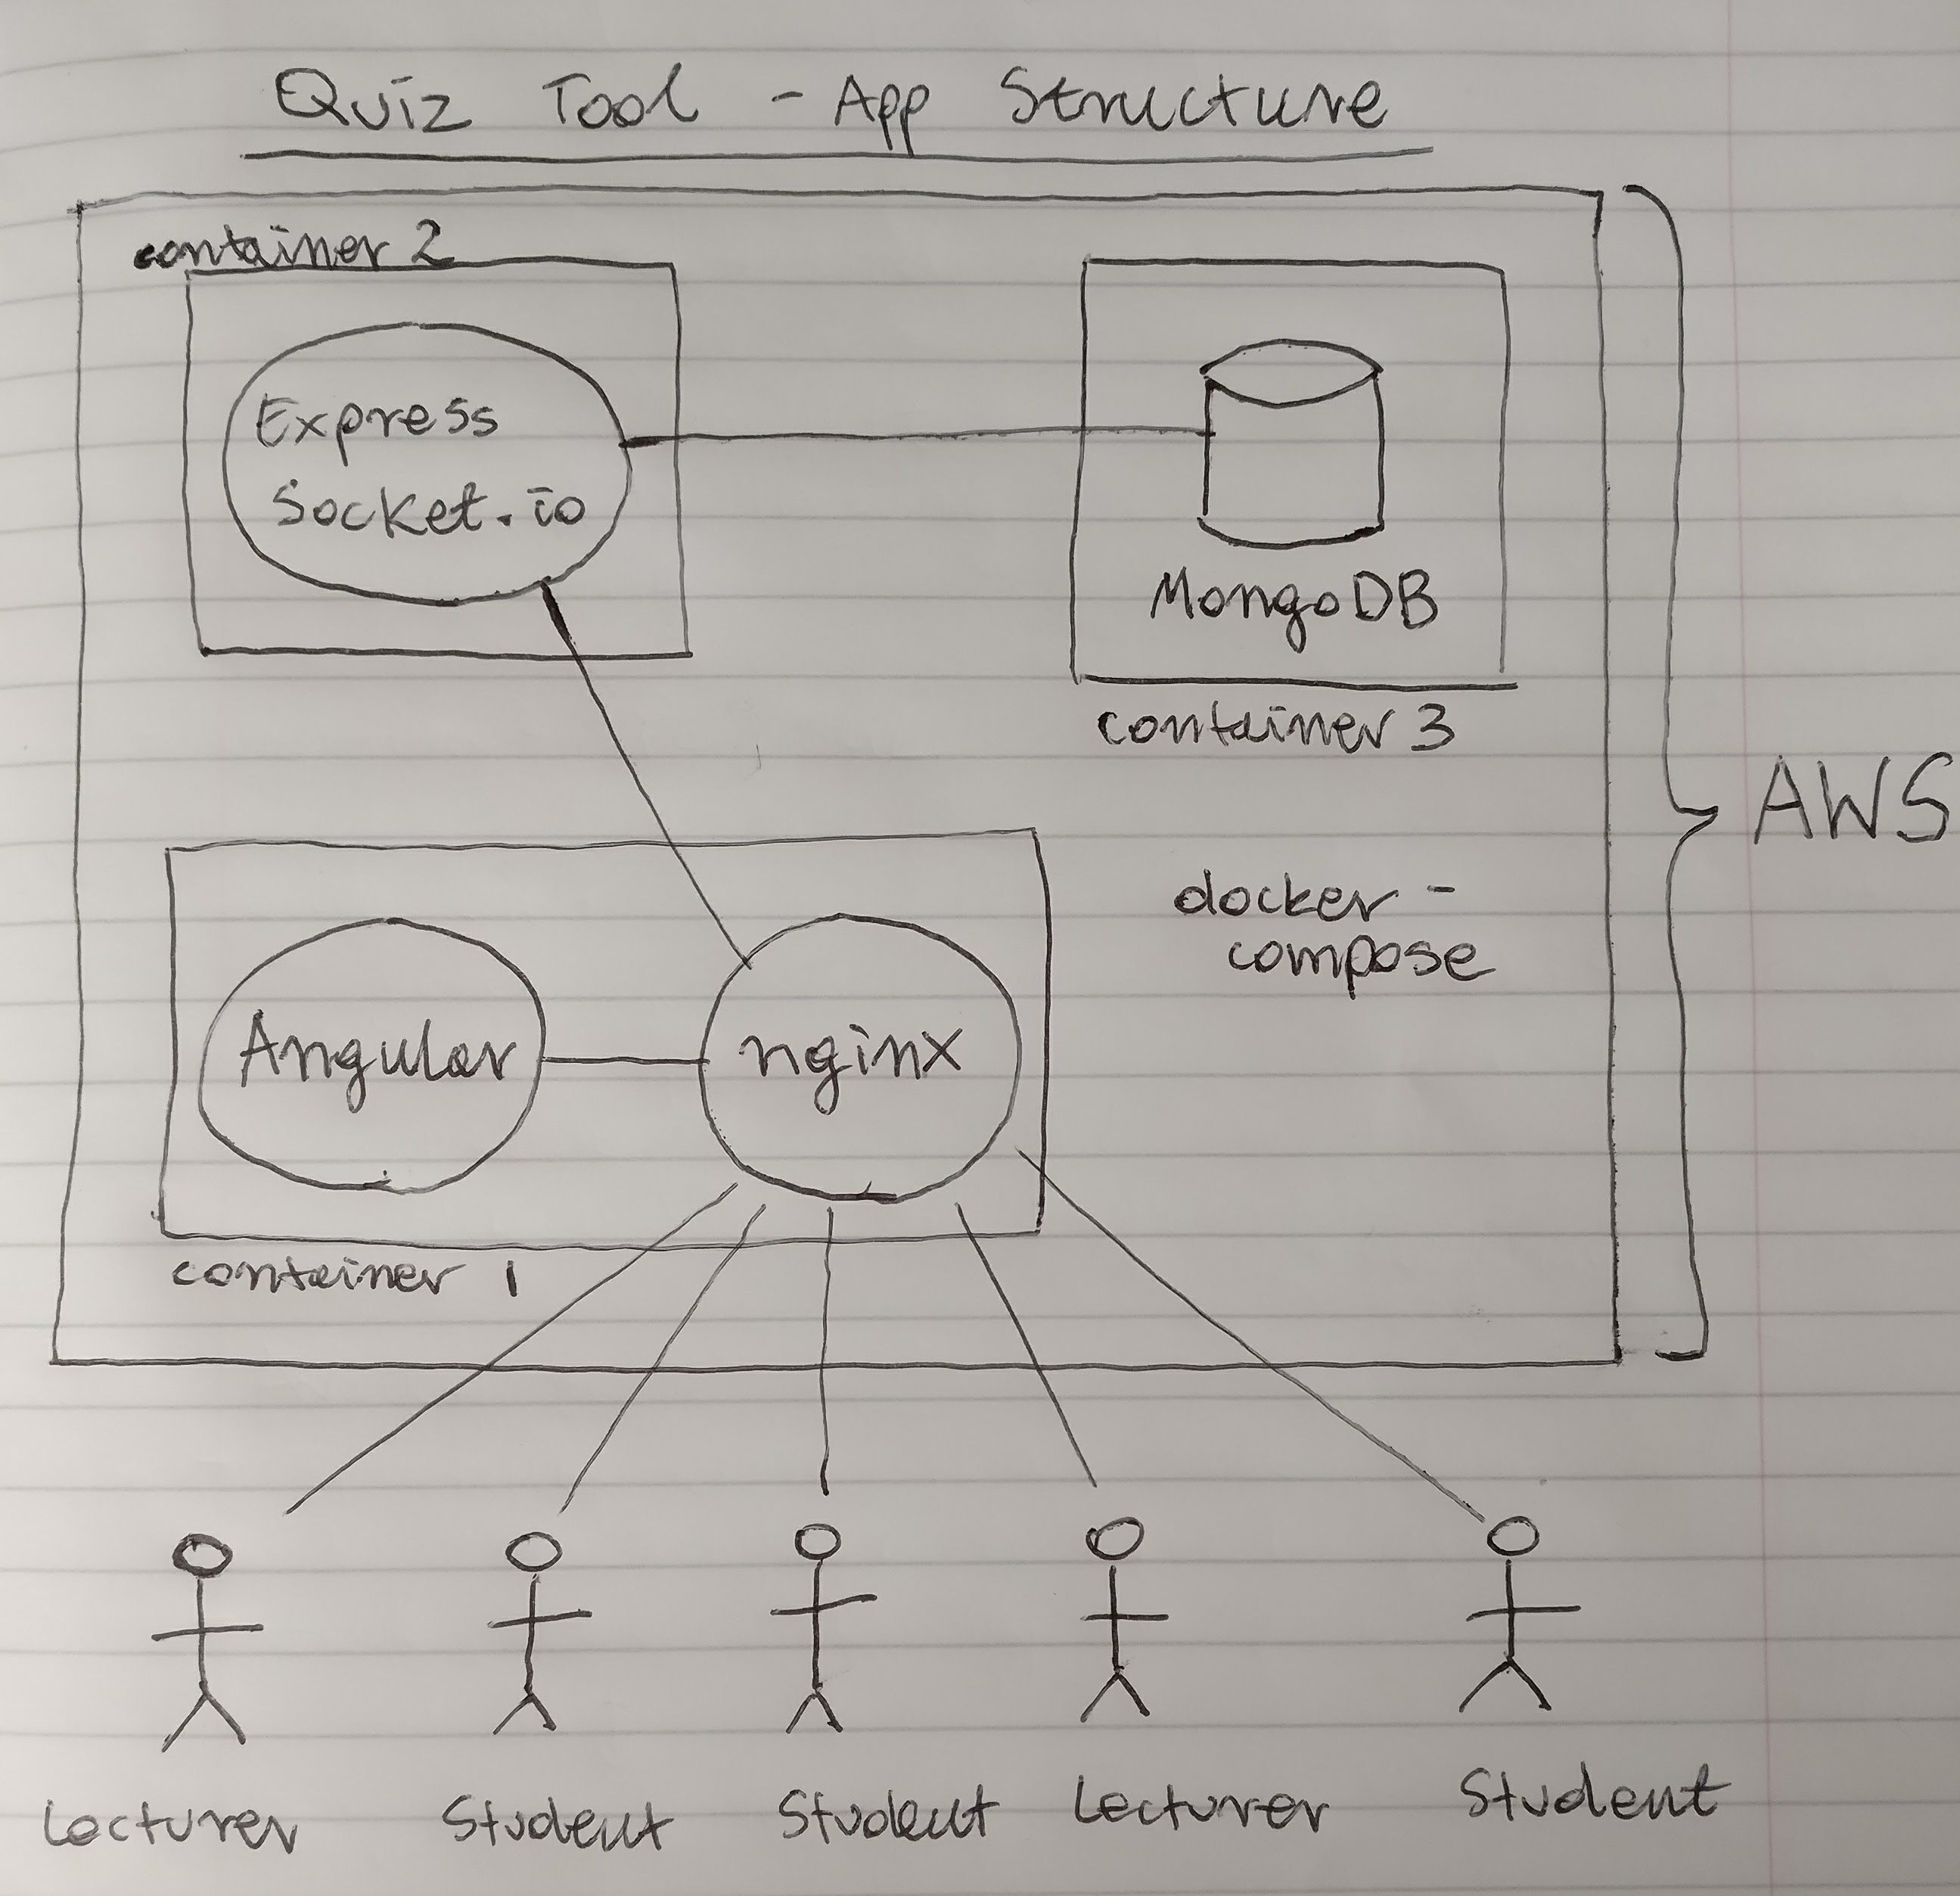 Quiz Tool - App Structure
container 2
Express
Socket.io
MongoDB
container 3
AWS
docker-
compose
Angular
nginx
container 1
Lecturer
Student
Student
Lecturer
Student